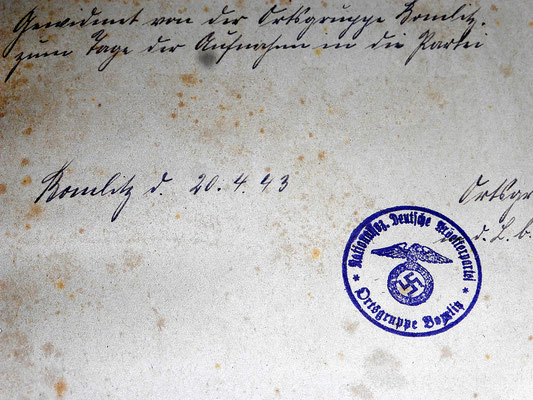 Gewidmet von der Ortsgruppe Bomlitz.
zum Tage der Aufnahme in die Partei
Bomlitz d. 20.4.43
Ortsgr
d. L. b.
Nationalsoz. Deutsche Arbeiterpartei
* Ortsgruppe Bomlitz *